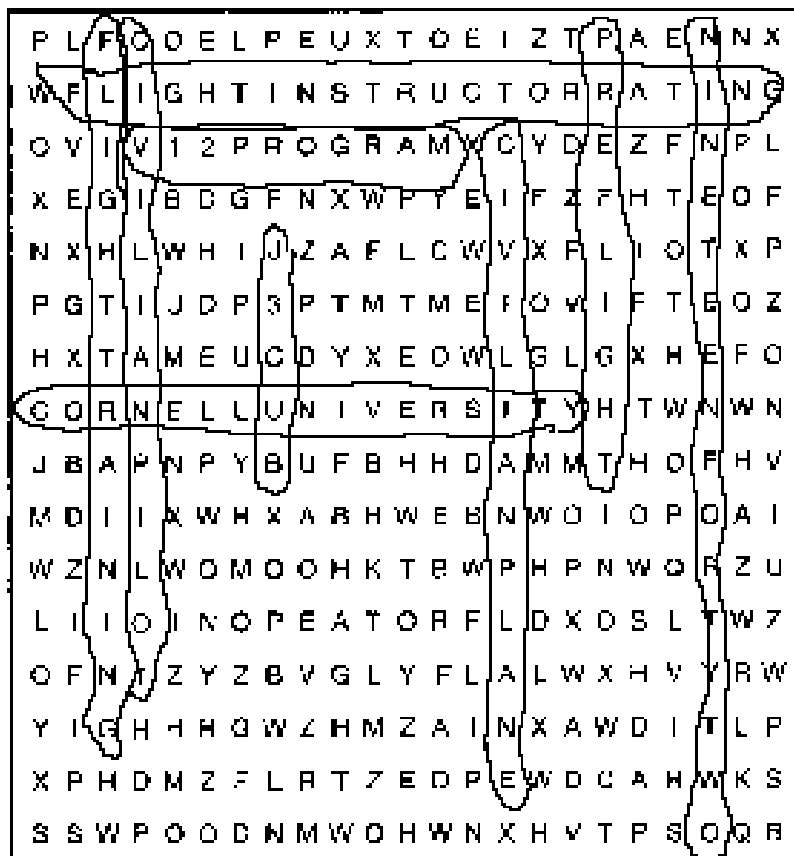 P L F C O E L P E U X T O E I Z T P A E N N X
W F L I G H T I N S T R U C T O R R A T I N G
O V I V 1 2 P R O G R A M W C Y D E Z F N P L
X E G I B D G F N X W P Y E I F Z F H T E O F
N X H L W H I J Z A F L C W V X P L I O T X P
P G T I J D P S P T M T M E I O W I F T E O Z
H X T A M E U C D Y X E O W L G L G X H E F O
C O R N E L L U N I V E R S I T Y H T W N W N
J B A P N P Y B U F B H H D A M M T H O F H V
M D I I X W H X A B H W E B N W O I O P O A I
W Z N L W O M O O H K T B W P H P N W O R Z U
L I I O I N O P E A T O R F L D X O S L T W Z
O F N T Z Y Z B V G L Y F L A L W X H V Y R W
Y I G H H H G W Z H M Z A I N X A W D I T L P
X P H D M Z F L R T Z E D P E W D C A H W K S
S S W P O O D N M W O H W N X H V T P S O Q R